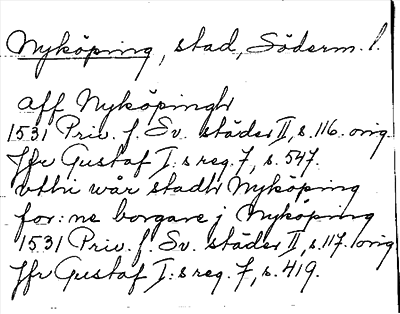 Nyköping, stad, Söderm. l.
aff Nyköpingh
1531 Priv. f. Sv. städer II, s. 116. orig.
Jfr Gustaf I:s reg. 7, s. 547.
vthi wår stadh Nyköping
for:ne borgare j Nyköping
1531 Priv. f. Sv. städer II, s. 117. orig
Jfr Gustaf I:s reg. 7, s. 419.